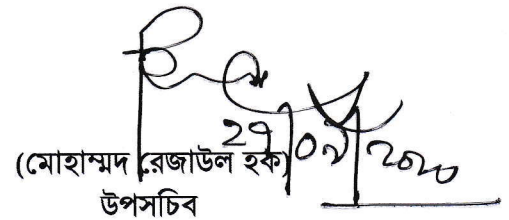 ২৭|০৭|২০২০
(মোহাম্মদ রেজাউল হক)
উপসচিব